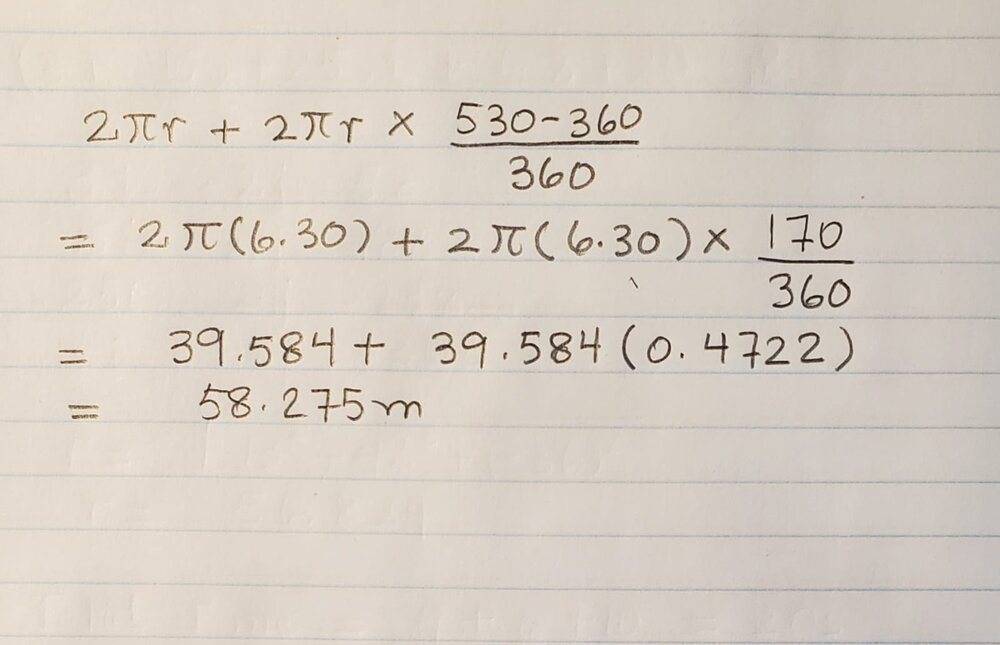 2πr + 2πr × 530-360/360
= 2π(6.30) + 2π(6.30) × 170/360
= 39.584 + 39.584(0.4722)
= 58.275m